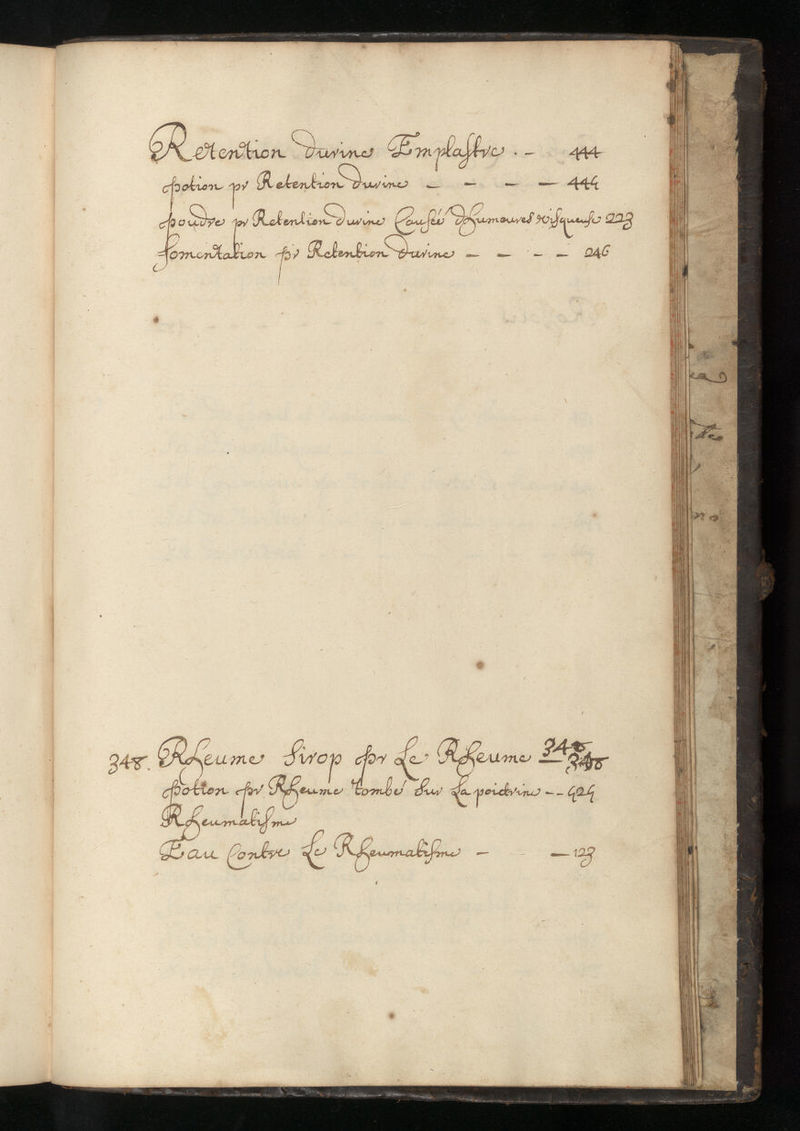 Retention durine Emplastre . - 444
potion pr Retention durine - - - - 445
poudre pr Retention durine Causeé dhumeures visqueuse 223
fomentation pr Retention durine - - - - 246
348. Rheume Sirop pr Le Rheume - 348
potion pr Rheume tombé sur La poictrine - - 525
Rheumatisme
Eau Contre Le Rheumatisme - - 123